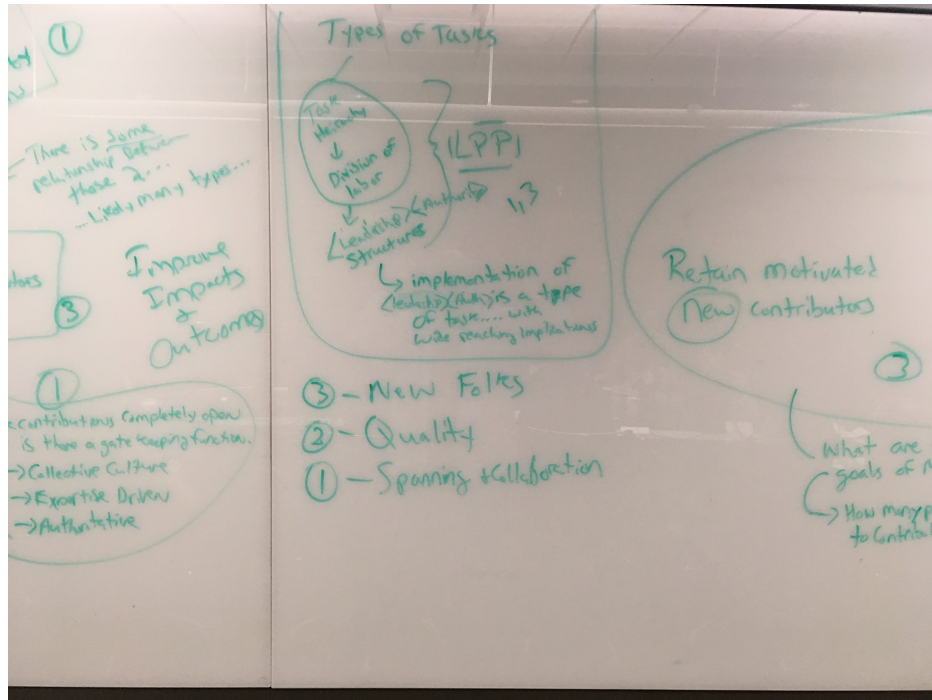 ①
There is some
relationship Between
those 2...
...Likely many types...
③
Improve
Impacts
&
Outcomes
①
contributions completely open
is there a gate keeping function.
→ Collective Culture
→ Expertise Driven
→ Authoritative
Types of Tasks
Task
Heirarchy
↓
Division of
labor
↓
Leadership
Structures
<Authority>
|LPP|
1,3
↳ implementation of
<leadership> <Auth> is a type
of task.... with
wide reaching implications
③ - New Folks
② - Quality
① - Spanning + Collaboration
Retain motivated
New contributors
③
What are
goals of
→ How many
to